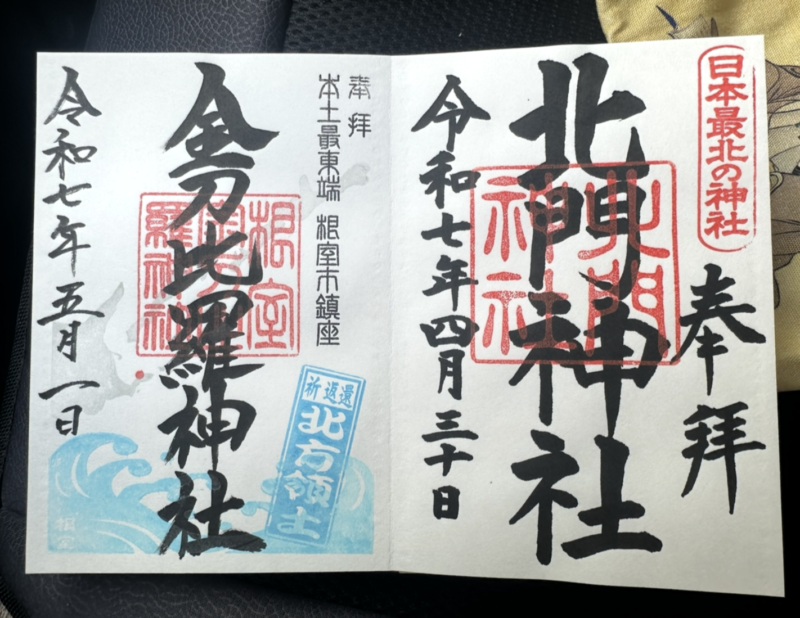 日本最北の神社
奉拝
北門神社
北門神社
令和七年四月三十日
奉拝
本土最東端 根室市鎮座
金刀比羅神社
根室
羅神社
令和七年五月一日
祈返還
北方領土
根室